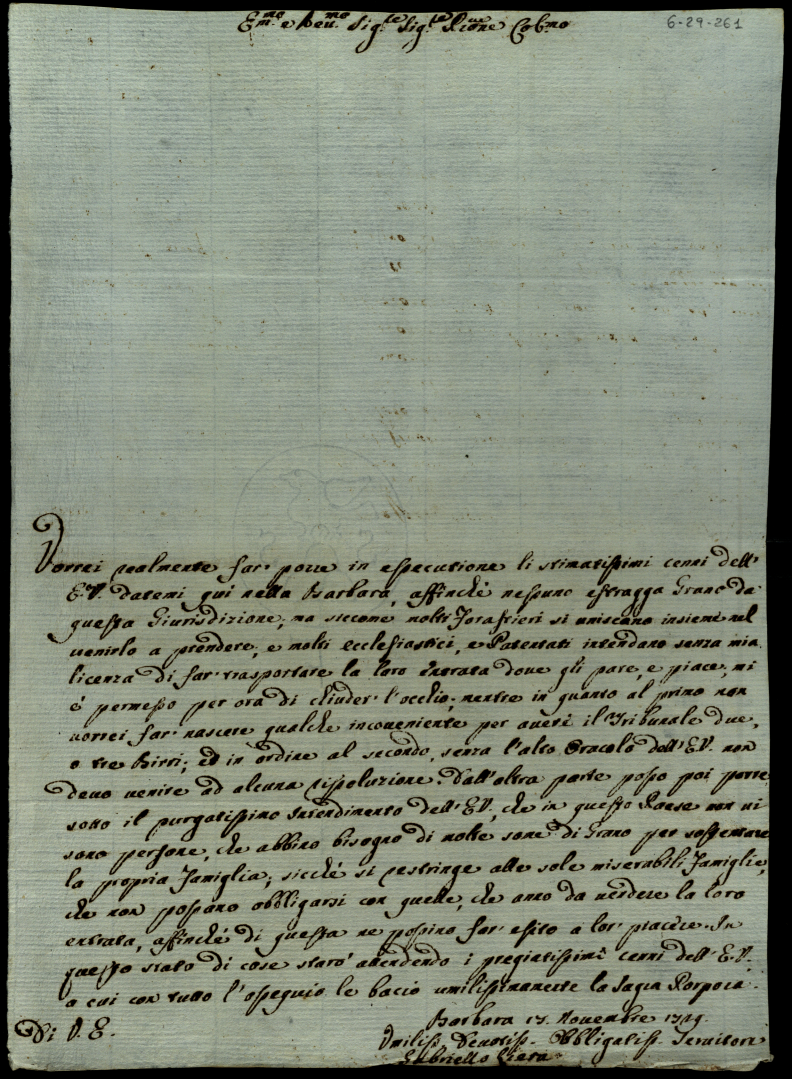 6-29-261
Em͞o e Reu͞mo Sig.re Sig.re Pro͞ne Col͞mo
Vorrei realmente far' porre in essecutione li stimatissimi cenni dell'
E.V. datemi quì nella Barbara, affinchè nessuno estragga Grano da
questa Giurisdizione; ma siccome molti Forastieri si uniscano insieme nel
uenirlo a prendere, e molti ecclesiastici, e Patentati intendano senza mia
licenza di far' trasportare la loro entrata doue gli pare, e piace, mi
è permesso per ora di chiuder' l'occhio; mentre in quanto al primo non
uorrei far' nascere qualche inconueniente per auere il Tribunale due,
o tre Birri; ed in ordine al secondo, senza l'alto Oracolo dell'E.V. non
deuo uenire ad alcuna rissoluzione. Dall'altra parte posso poi porre
sotto il purgatissimo Intendimento dell'E.V., che in questo Paese non ui
sono persone, che abbino bisogno di molte some di Grano per sostentare
la propria Famiglia; sicchè si restringe alle sole miserabili Famiglie,
che non possano obbligarsi con quelle, che anno da uendere la loro
entrata, affinchè di questa ne possino far' esito a lor' piacere. In
questo stato di cose starò attendendo i pregiatissimi cenni dell'E.V.
a cui con tutto l'ossequio le bacio umilissimamente la Sagra Porpora.
Di V. E.
Barbara Nouembre
Vmiliss. Deuotiss. Obbligatiss. Seruitore
Gabriello